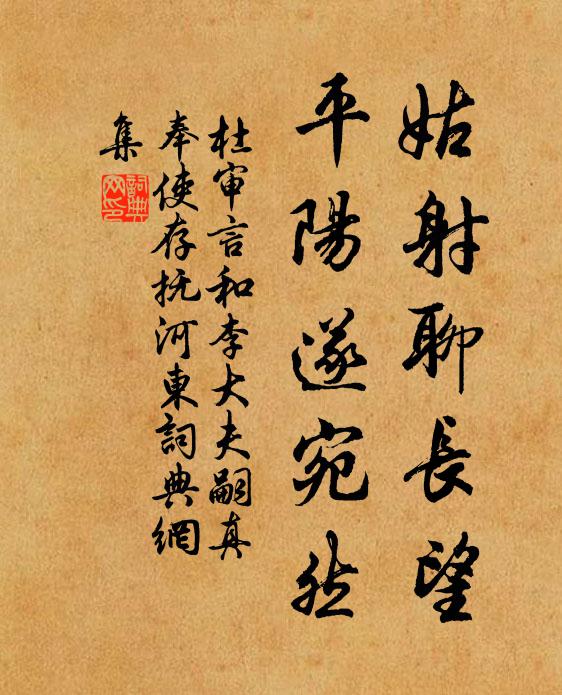 姑射聊長望
平陽遂宛然
杜审言和李大夫嗣真
奉使存抚河東詞典網
集
詞典
网印